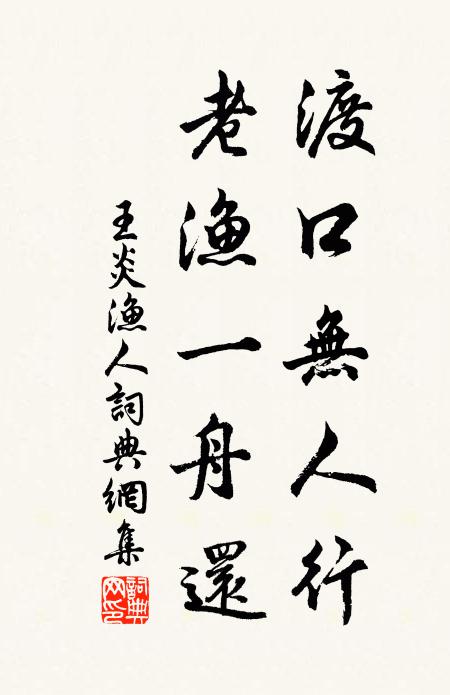 渡口無人行
老漁一舟還
王炎漁人詞典網集
詞典
网印